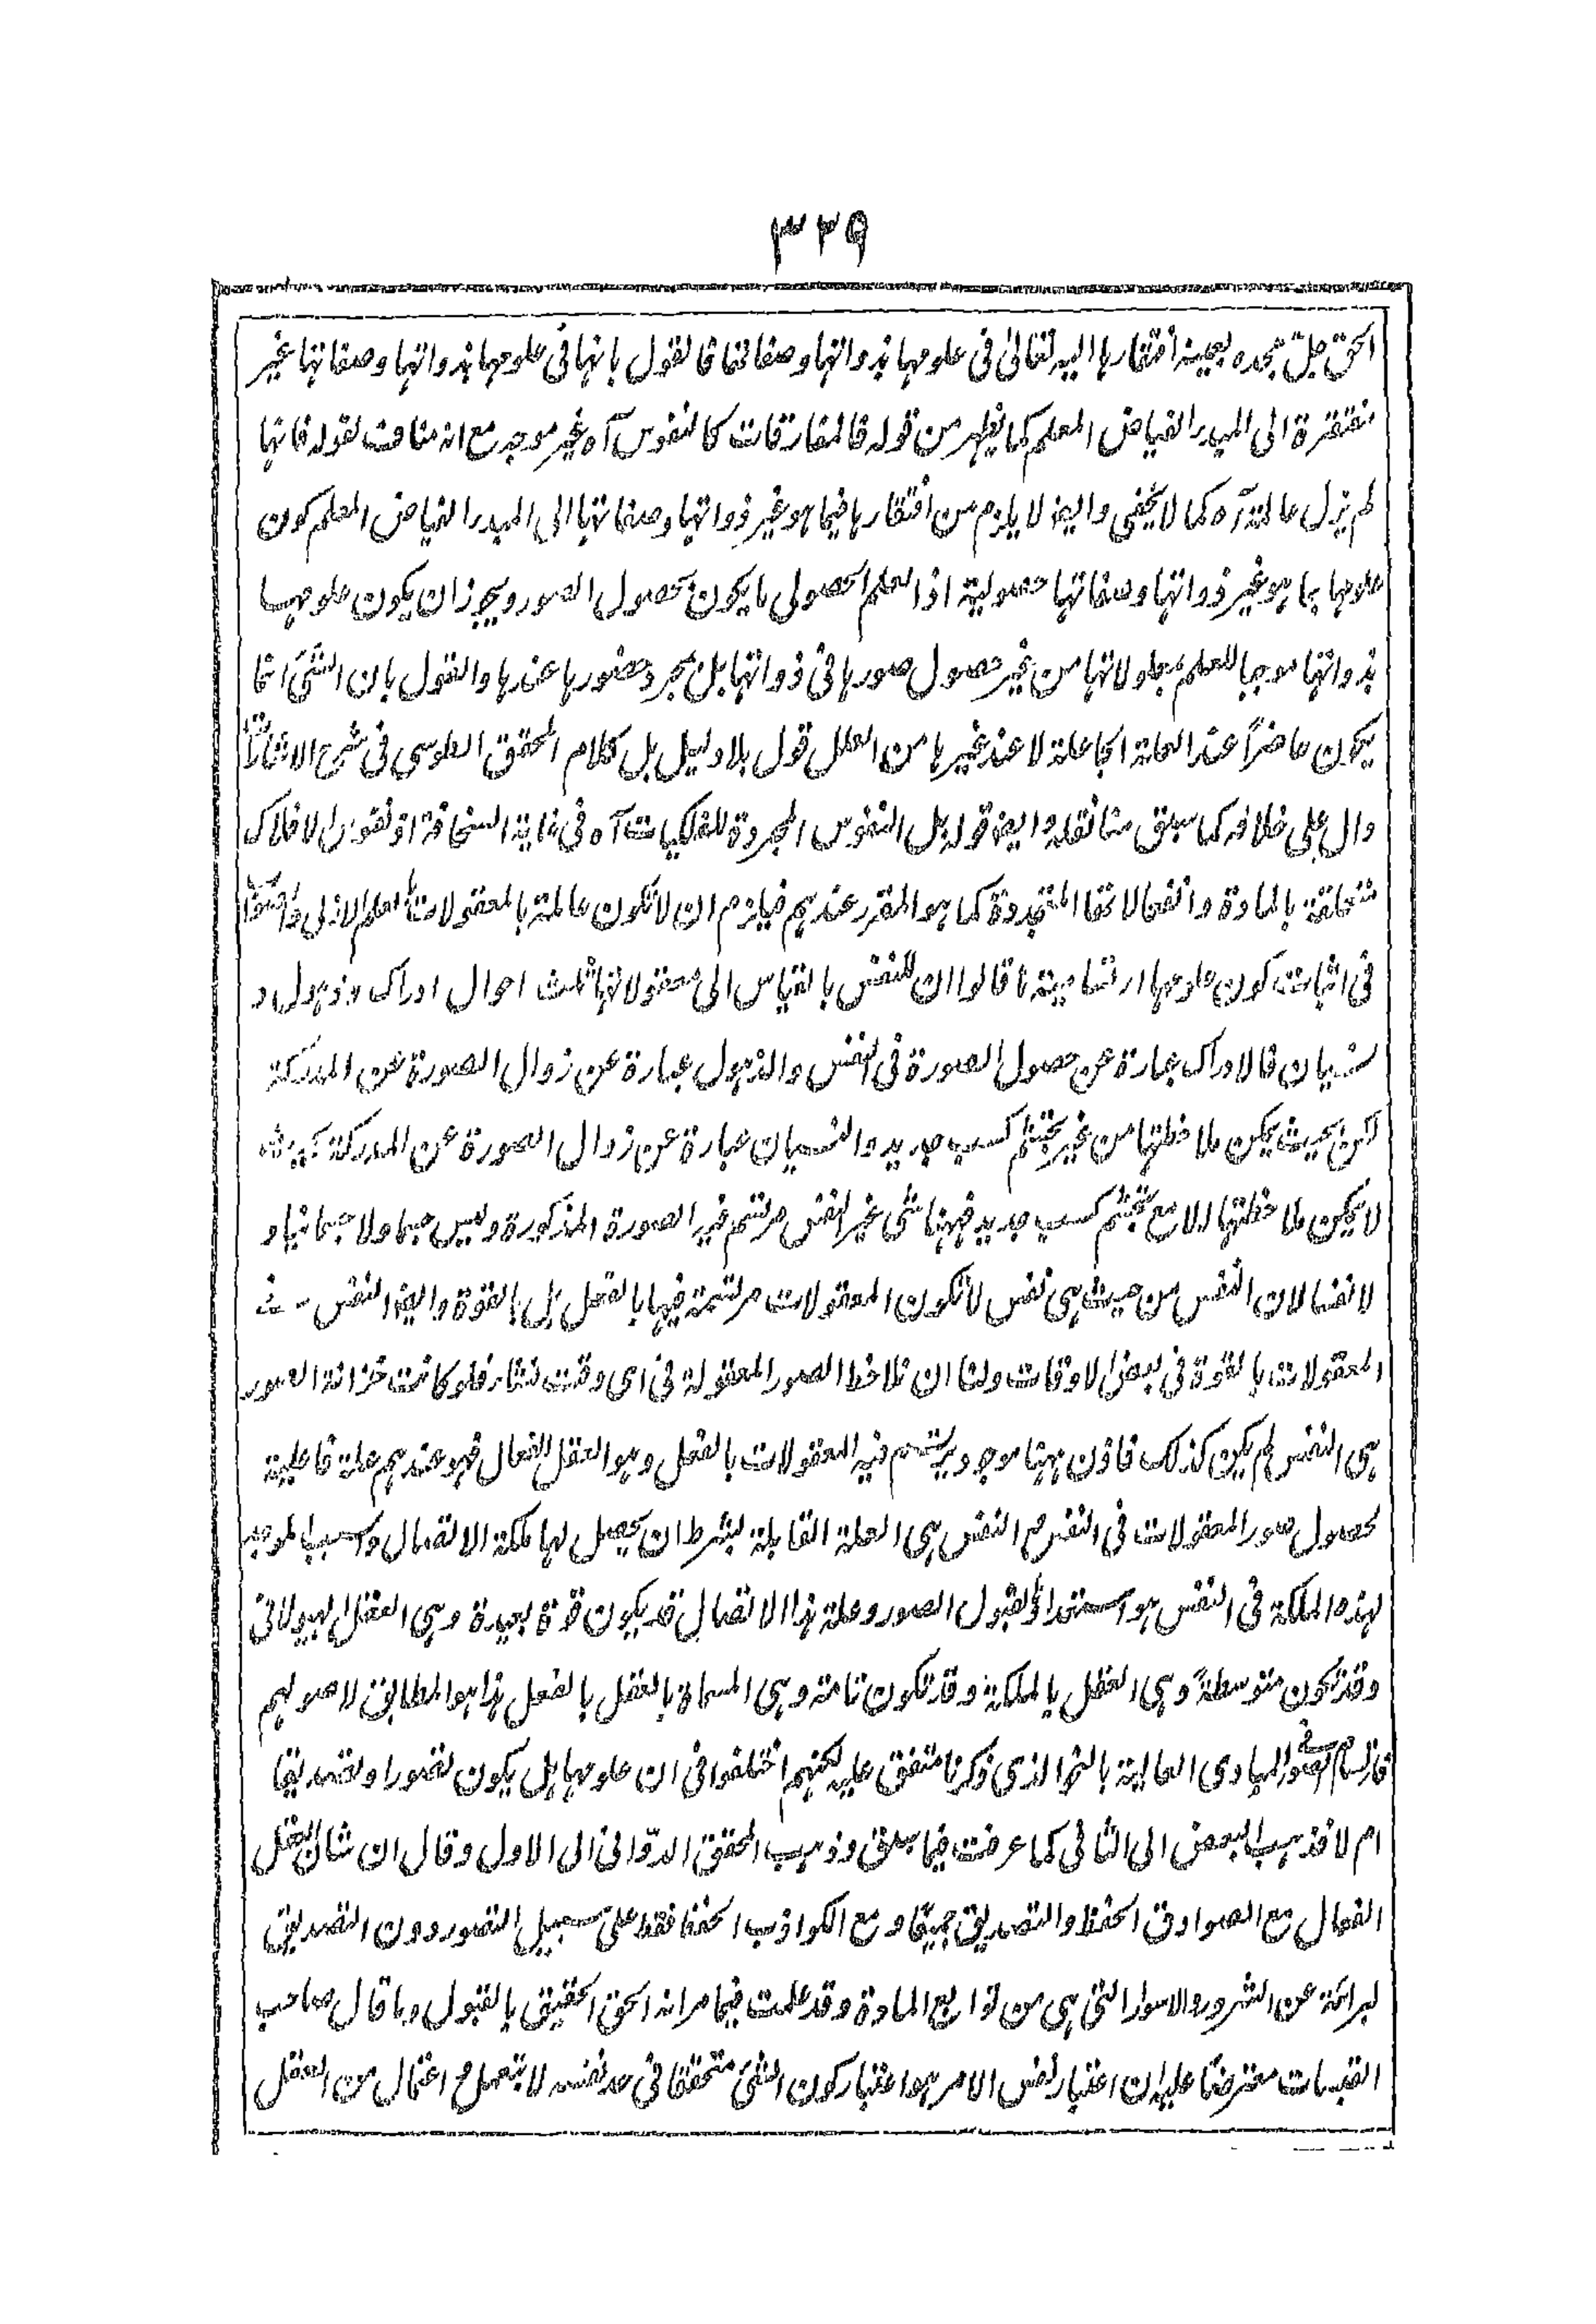 ٣٣٩
الحق جل مجده بعينه افتقارها اليه تعالى فى علومها بذواتها وصفاتها فالقول بانها فى علومها بذواتها وصفاتها غير
مفتقرة الى المبدر الفياض المعلم كما يظهر من قوله فالمفارقات كالنفوس آه غير موجه مع انه مناف لقوله فانها
لم يزل عالمة آه كما لا يخفى وايضا لا يلزم من افتقارها فيما هو غير ذواتها وصفاتها الى المبدر الفياض المعلم كون
علومها بما هو غير ذواتها وصفاتها حصولية اذ العلم الحصولى ما يكون بحصول الصور ويجوز ان يكون علومها
بذواتها موجبا للعلم بمعلولاتها من غير حصول صورها فى ذواتها بل بمجرد حضورها عندها والقول بان الشئ انما
يكون حاضراً عند العلة الجاعلة لا عند غيرها من العلل قول بلا دليل بل كلام المحقق الطوسى فى شرح الاشارات
دال على خلافه كما سبق منا نقله وايضا قوله بل النفوس المجردة للفلكيات آه فى غاية السخافة اذ نفوس الافلاك
متعلقة بالمادة وانفعالاتها المتجددة كما هو المقرر عندهم فيلزم ان لا تكون عالمة بالمعقولات بالعلم الازلى واحتجوا
فى اثبات كون علومها ارتسامية بما قالوا ان للنفس بالقياس الى معقولاتها ثلث احوال ادراك وذهول و
نسيان فالادراك عبارة عن حصول الصورة فى النفس والذهول عبارة عن زوال الصورة عن المدركة
لكن بحيث يمكن ملاحظتها من غير تجشم كسب جديد والنسيان عبارة عن زوال الصورة عن المدركة بحيث
لا يمكن ملاحظتها الا مع تجشم كسب جديد فههنا شئ غير النفس مرتسم فيه الصورة المذكورة وليس جسما ولا جسمانيا و
لا نفسا لان النفس من حيث هى نفس لا تكون المعقولات مرتسمة فيها بالفعل بل بالقوة وايضا النفس
المعقولات بالقوة فى بعض الاوقات ولنا ان نلاحظ الصور المعقولة فى اى وقت نشاء فلو كانت خزانة الصور
هى النفس لم يكن كذلك فاذن ههنا موجود يرتسم فيه المعقولات بالفعل وهو العقل الفعال فهو عندهم علة فاعلية
لحصول صور المعقولات فى النفس والنفس هى العلة القابلة بشرط ان يحصل لها ملكة الاتصال والسبب الموجب
لهذه الملكة فى النفس هو استعداد القبول الصور وعلة هذا الاتصال قد يكون قوة بعيدة وهى العقل الهيولانى
وقد تكون متوسطة وهى العقل بالملكة وقد تكون تامة وهى المسماة بالعقل بالفعل هذا هو المطابق لاصولهم
فارتسام الصور فى المبادى العالية بالنحو الذى ذكرنا متفق عليه لكنهم اختلفوا فى ان علومها هل يكون تصورا وتصديقا
ام لا فذهب البعض الى الثانى كما عرفت فيما سبق وذهب المحقق الدوانى الى الاول وقال ان شان العقل
الفعال مع الصوادق الحفظ والتصديق جميعا ومع الكواذب الحفظ فقط على سبيل التصور دون التصديق
لبراءته عن الشرور والاسواء التى هى من توابع المادة وقد علمت فيما مر انه الحق الحقيق بالقبول وما قال صاحب
القبسات معترضا عليه ان اعتبار نفس الامر هو اعتبار كون الشئ متحققا فى حد نفسه لا بتعمل واعتمال من العقل